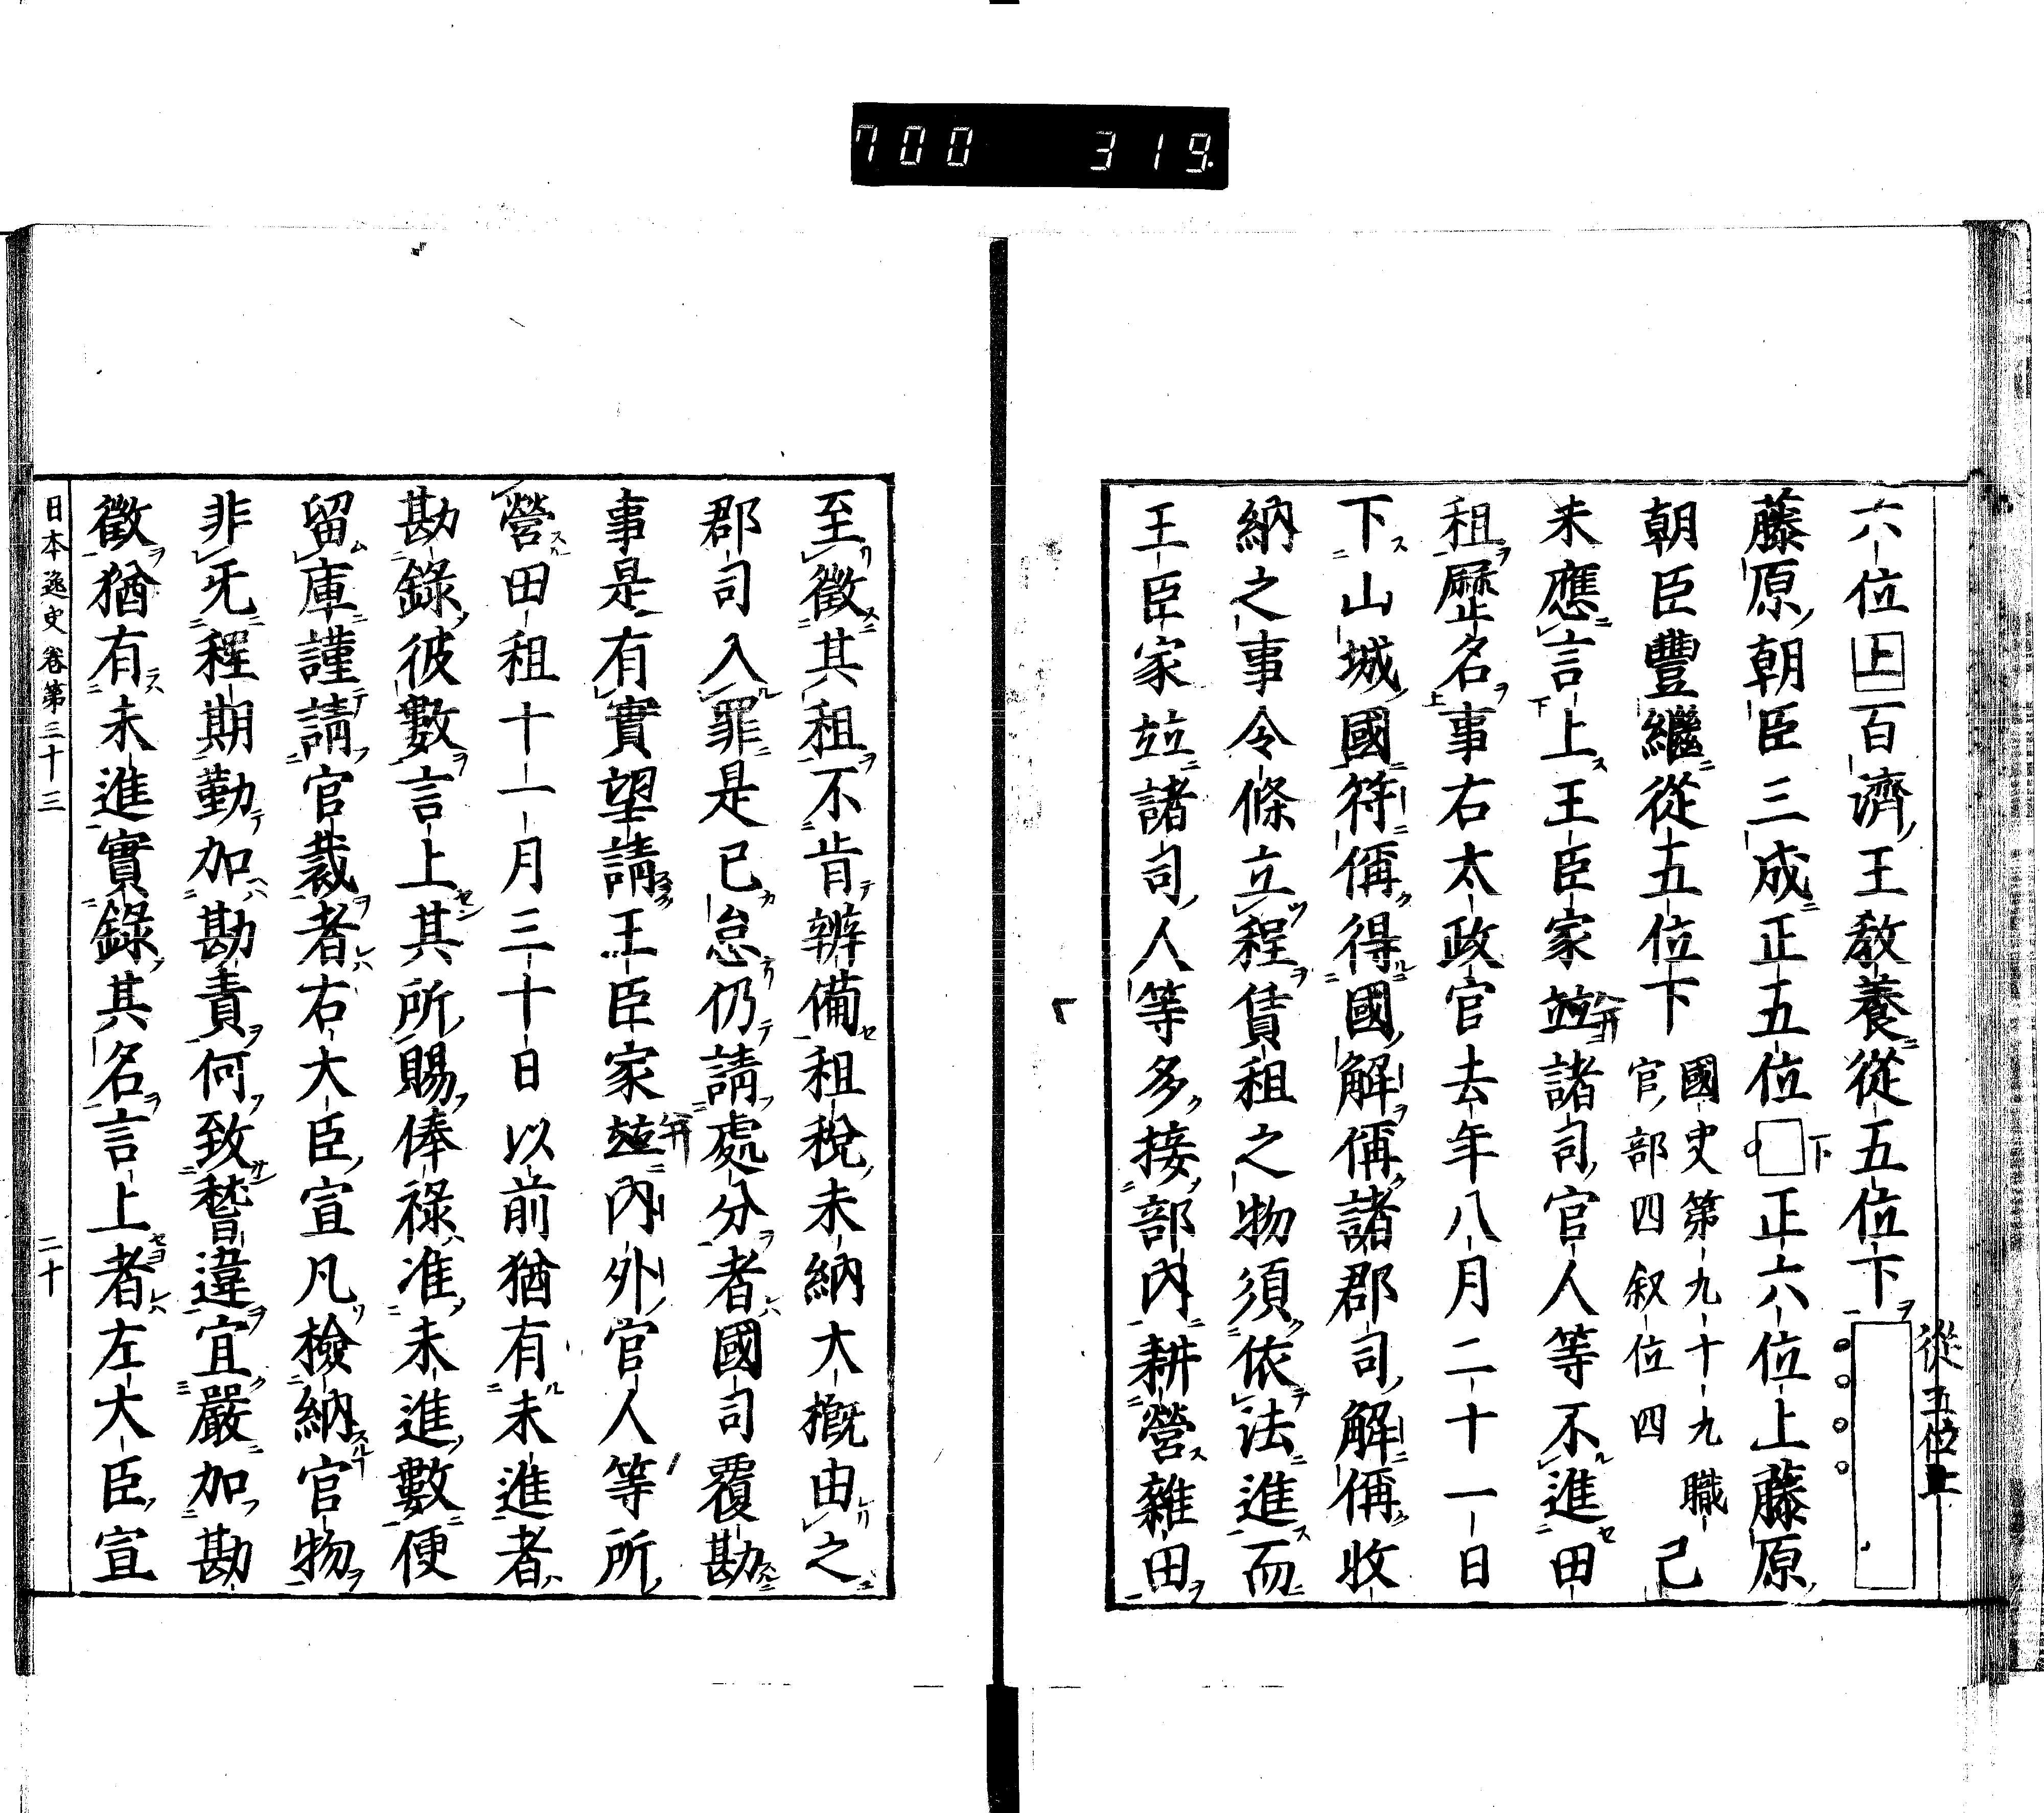 700 319
六位上百濟王敎養從五位下從五位上
藤原朝臣三成正五位下正六位上藤原
朝臣豐繼從五位下國史第九十九職官部四叙位四己
未應言上王臣家並諸司官人等不進田
租歷名事右太政官去年八月二十一日
下山城國符偁得國解偁諸郡司解偁收
納之事令條立程賃租之物須依法進而
王臣家並諸司人等多接部內耕營雜田
至徵其租不肯辨備租稅未納大概由之
郡司入罪是已怠仍請處分者國司覆勘
事是有實望請王臣家並內外官人等所
營田租十一月三十日以前猶有未進者
勘錄彼數言上其所賜俸祿准未進數便
留庫謹請官裁者右大臣宣凡檢納官物
非无程期勤加勘責何致稽違宜嚴加勘
徵猶有未進實錄其名言上者左大臣宣
日本逸史卷第三十三 二十